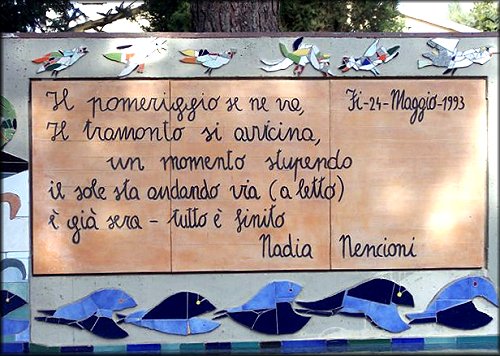 Il pomeriggio se ne va,
Fi-24-Maggio-1993
Il tramonto si avvicina,
un momento stupendo
il sole sta andando via (a letto)
è già sera - tutto è finito
Nadia Nencioni